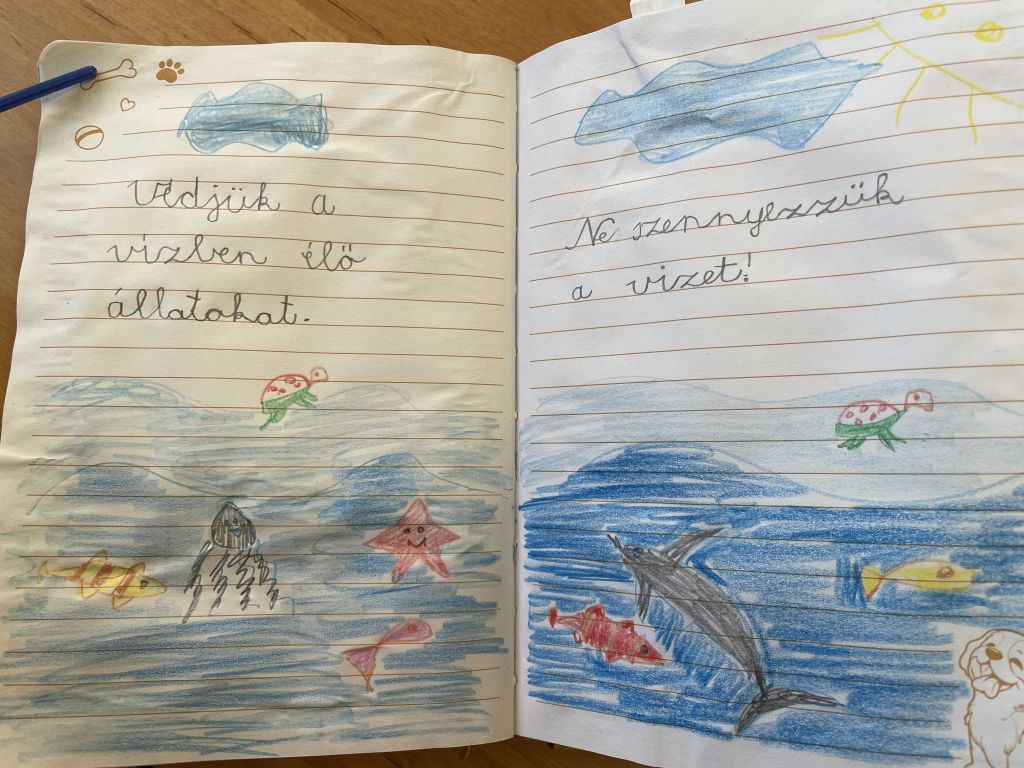 Védjük a
vízben élő
állatokat.
Ne szennyezzük
a vizet!